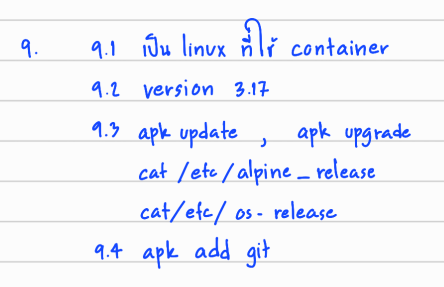 9. 9.1 เป็น linux ที่ใช้ container
9.2 version 3.17
9.3 apk update , apk upgrade
cat /etc/alpine_release
cat/etc/os-release
9.4 apk add git